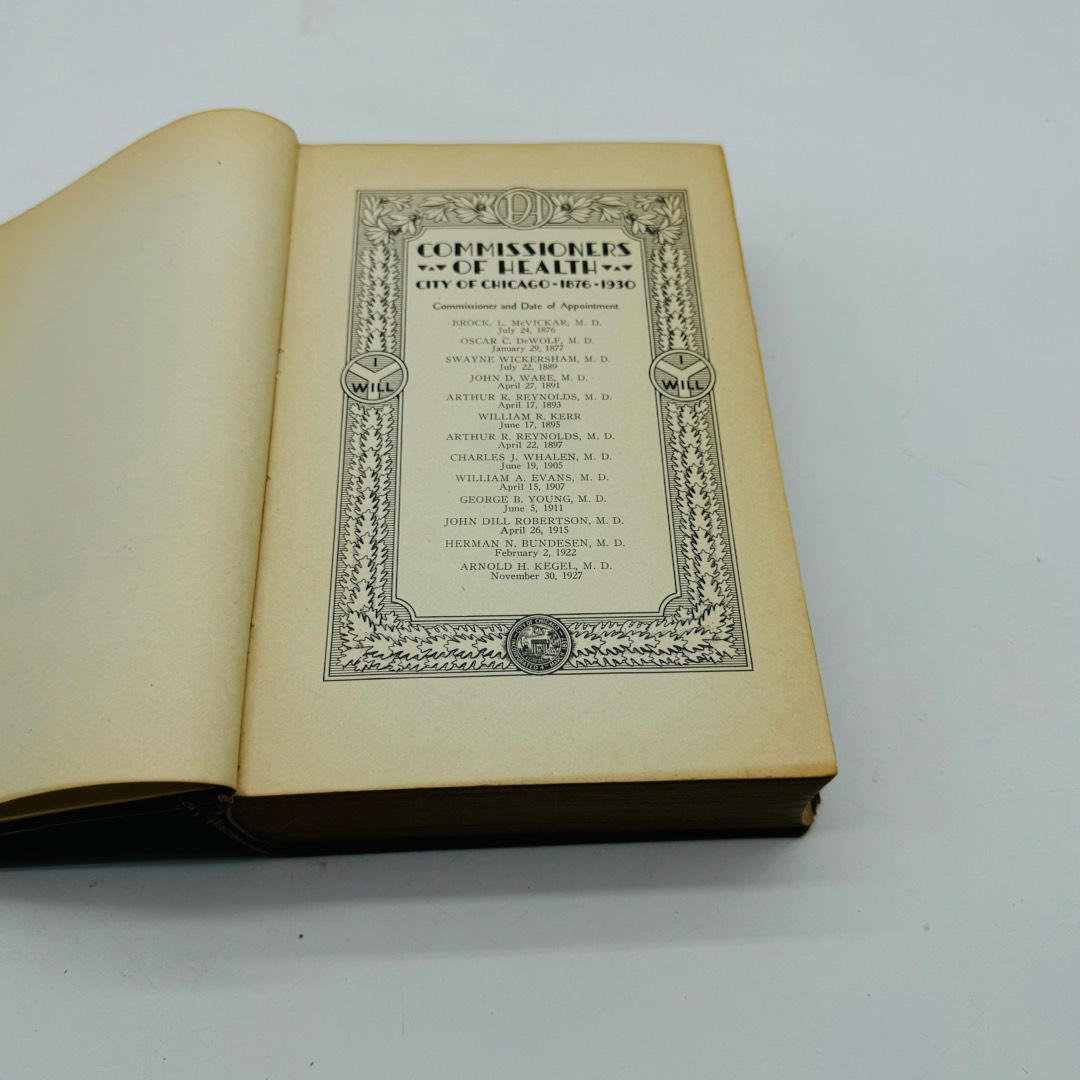 COMMISSIONERS
OF HEALTH
CITY OF CHICAGO • 1876 • 1930
Commissioner and Date of Appointment
BROCK. L. McVICKAR, M. D.
July 24, 1876
OSCAR C. DeWOLF, M. D.
January 29, 1877
SWAYNE WICKERSHAM, M. D.
July 22, 1889
JOHN D. WARE, M. D.
April 27, 1891
ARTHUR R. REYNOLDS, M. D.
April 17, 1893
WILLIAM R. KERR
June 17, 1895
ARTHUR R. REYNOLDS, M. D.
April 22, 1897
CHARLES J. WHALEN, M. D.
June 19, 1905
WILLIAM A. EVANS, M. D.
April 15, 1907
GEORGE B. YOUNG, M. D.
June 5, 1911
JOHN DILL ROBERTSON, M. D.
April 26, 1915
HERMAN N. BUNDESEN, M. D.
February 2, 1922
ARNOLD H. KEGEL, M. D.
November 30, 1927
I WILL
I WILL
CITY OF CHICAGO
INCORPORATED 4TH MARCH